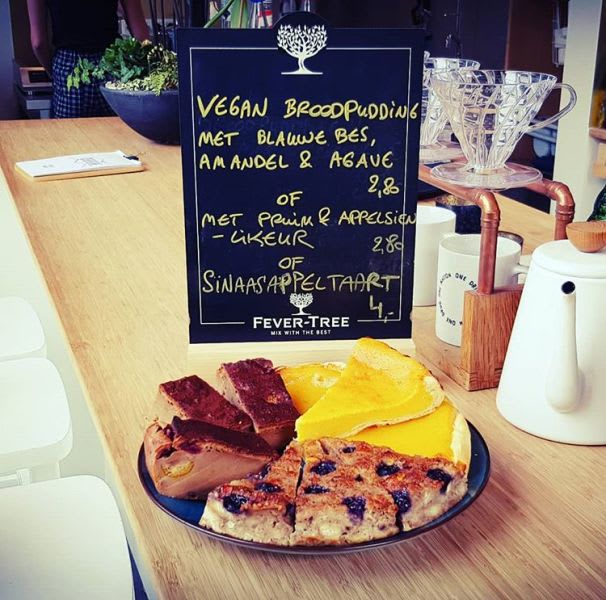 VEGAN BROODPUDDING
MET BLAUWE BES,
AMANDEL & AGAVE
2,80
OF
MET PRUIM & APPELSIEN
- LIKEUR 2,80
OF
SINAASAPPELTAART
4,-
FEVER-TREE
MIX WITH THE BEST